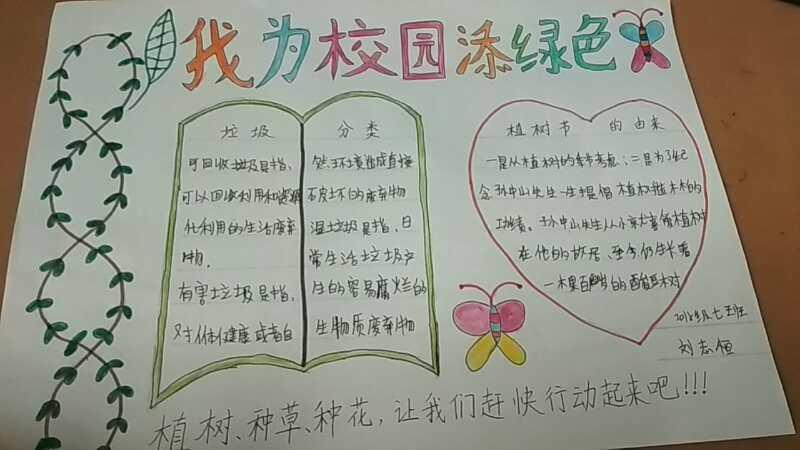 我为校园添绿色
垃圾 分类
可回收垃圾是指，
可以回收利用和资源
化利用的生活废弃
物．
有害垃圾是指，
对人体健康或者自
然环境造成直接
破坏的废弃物
湿垃圾是指，日
常生活垃圾产
生的容易腐烂的
生物质废弃物
植树节 的由来
一是从植树的季节考虑；二是为了纪
念孙中山先生一生提倡植树造林的
功绩。孙中山先生从小喜爱植树
在他的故居，至今仍生长着
一棵百龄的酸豆树
七五班
刘志恒
植树、种草、种花，让我们赶快行动起来吧!!!